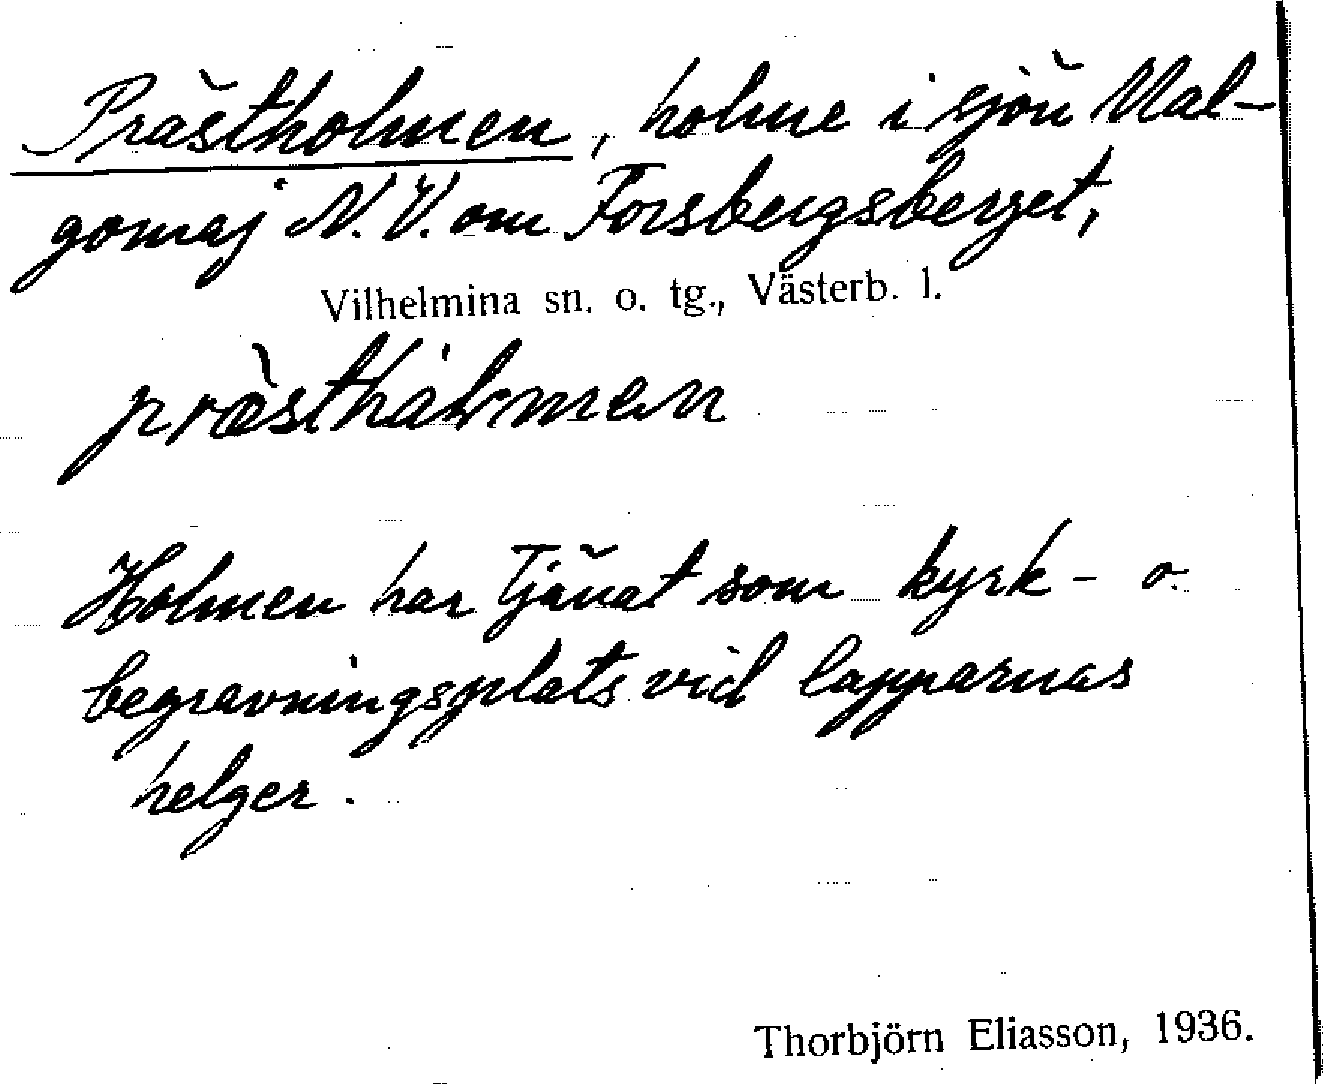 Prästholmen, holme i sjön Mal-
gomaj N.V. om Forsbergsberget,
Vilhelmina sn. o. tg., Västerb. l.
præ̀sthǻlmen
Holmen har tjänat som kyrk- o.
begravningsplats vid lapparnas
helger.
Thorbjörn Eliasson, 1936.